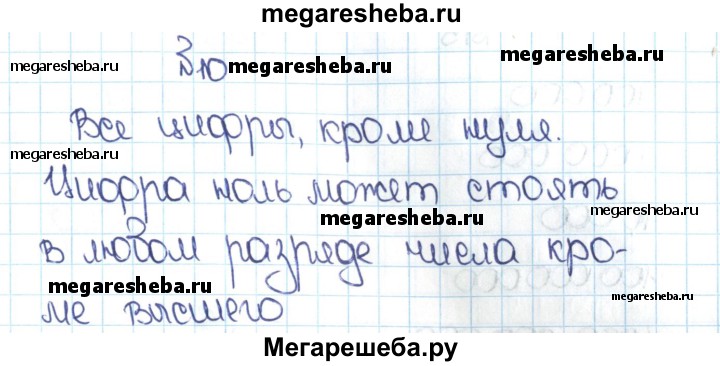 megaresheba.ru
№10
megaresheba.ru
megaresheba.ru
Все цифры, кроме нуля.
megaresheba.ru
Цифра ноль может стоять
megaresheba.ru
megaresheba.ru
в любом разряде числа кро-
megaresheba.ru
megaresheba.ru
ме высшего
Мегарешеба.ру